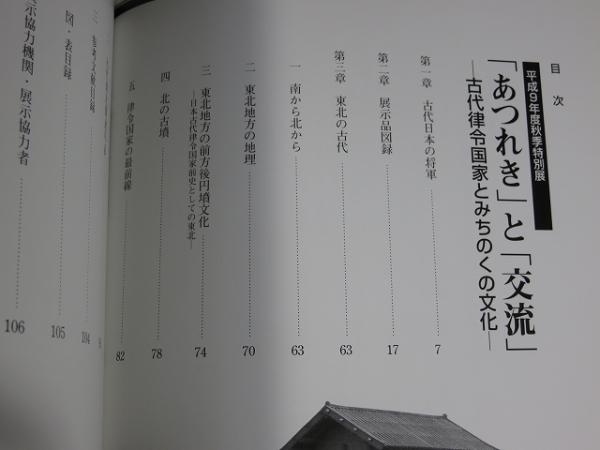 目次
平成9年度秋季特別展
「あつれき」と「交流」
―古代律令国家とみちのくの文化―
第一章 古代日本の将軍 7
第二章 展示品図録 17
第三章 東北の古代 63
一 南から北から 63
二 東北地方の地理 70
三 東北地方の前方後円墳文化 74
―日本古代律令国家前史としての東北―
四 北の古墳 78
五 律令国家の最前線 82
三 参考文献目録 104
図・表目録 105
展示協力機関・展示協力者 106